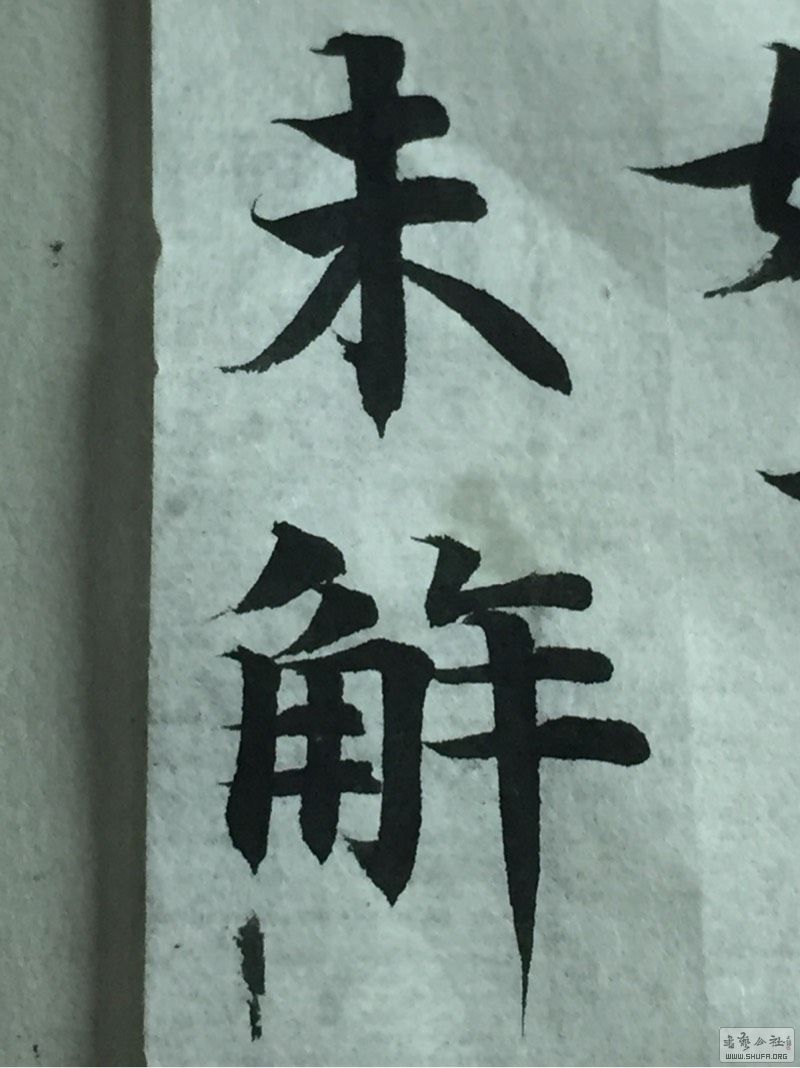 未
解
书艺公社
WWW.SHUFA.ORG